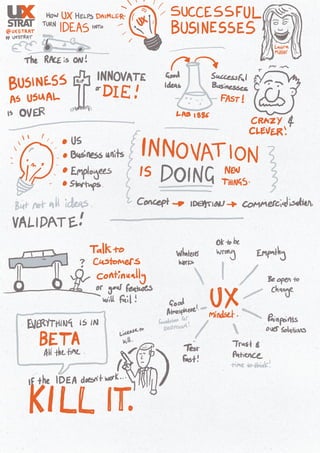 UX
STRAT
@UXSTRAT
# UXSTRAT
HOW UX HELPS DAIMLER
TURN IDEAS INTO
SUCCESSFUL
BUSINESSES
UX
Laura
The RACE is ON!
BUSINESS
AS USUAL
IS OVER
INNOVATE
or DIE!
Good
Ideas
Successful
Businesses
FAST!
LAB 1886
CRAZY &
CLEVER!
US
Business units
Employees
Startups
But not all ideas.
VALIDATE!
INNOVATION
IS DOING NEW
THINGS.
Concept → IDEATION → commercialisation
Talk to
Customers
Continually
or good features
will fail!
?
UX
Mindset.
Ok to be
wrong
Empathy
Be open to
Change
Painpoints
over solutions
Trust &
Patience
time to think!
Test
Fast!
Good
Atmosphere!
Whatever
works
EVERYTHING IS IN
BETA
All the time
License to
kill.
IF the IDEA doesn't work...
KILL IT.